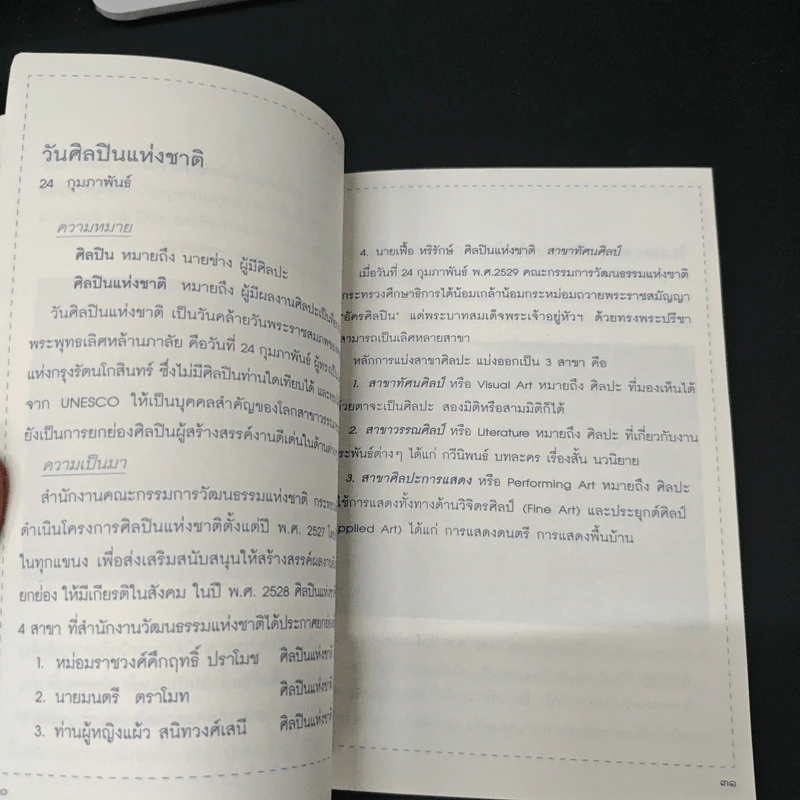 วันศิลปินแห่งชาติ
24 กุมภาพันธ์
ความหมาย
ศิลปิน หมายถึง นายช่าง ผู้มีศิลปะ
ศิลปินแห่งชาติ หมายถึง ผู้มีผลงานศิลปะเป็นที่
วันศิลปินแห่งชาติ เป็นวันคล้ายวันพระราชสมภพ
พระพุทธเลิศหล้านภาลัย คือวันที่ 24 กุมภาพันธ์ ผู้ทรงเป็น
แห่งกรุงรัตนโกสินทร์ ซึ่งไม่มีศิลปินท่านใดเทียบได้
จาก UNESCO ให้เป็นบุคคลสำคัญของโลกสาขาวรรณ
ยังเป็นการยกย่องศิลปินผู้สร้างสรรค์งานดีเด่นในด้าน
ความเป็นมา
สำนักงานคณะกรรมการวัฒนธรรมแห่งชาติ
ดำเนินโครงการศิลปินแห่งชาติตั้งแต่ปี พ.ศ. 2527
ในทุกแขนง เพื่อส่งเสริมสนับสนุนให้สร้างสรรค์ผลงาน
ยกย่อง ให้มีเกียรติในสังคม ในปี พ.ศ. 2528 ศิลปินแห่งชาติ
4 สาขา ที่สำนักงานวัฒนธรรมแห่งชาติได้ประกาศยกย่อง
1. หม่อมราชวงศ์คึกฤทธิ์ ปราโมช ศิลปินแห่งชาติ
2. นายมนตรี ตราโมท ศิลปินแห่งชาติ
3. ท่านผู้หญิงแผ้ว สนิทวงศ์เสนี ศิลปินแห่งชาติ
4. นายเฟื้อ หริรักษ์ ศิลปินแห่งชาติ สาขาทัศนศิลป์
เมื่อวันที่ 24 กุมภาพันธ์ พ.ศ.2529 คณะกรรมการวัฒนธรรมแห่งชาติ
กระทรวงศึกษาธิการได้น้อมเกล้าน้อมกระหม่อมถวายพระราชสมัญญา
"อัครศิลปิน" แด่พระบาทสมเด็จพระเจ้าอยู่หัวฯ ด้วยทรงพระปรีชา
สามารถเป็นเลิศหลายสาขา
หลักการแบ่งสาขาศิลปะ แบ่งออกเป็น 3 สาขา คือ
1. สาขาทัศนศิลป์ หรือ Visual Art หมายถึง ศิลปะ ที่มองเห็นได้
ด้วยตาจะเป็นศิลปะ สองมิติหรือสามมิติก็ได้
2. สาขาวรรณศิลป์ หรือ Literature หมายถึง ศิลปะ ที่เกี่ยวกับงาน
ประพันธ์ต่างๆ ได้แก่ กวีนิพนธ์ บทละคร เรื่องสั้น นวนิยาย
3. สาขาศิลปะการแสดง หรือ Performing Art หมายถึง ศิลปะ
ใช้การแสดงทั้งทางด้านวิจิตรศิลป์ (Fine Art) และประยุกต์ศิลป์
pplied Art) ได้แก่ การแสดงดนตรี การแสดงพื้นบ้าน
๓๑